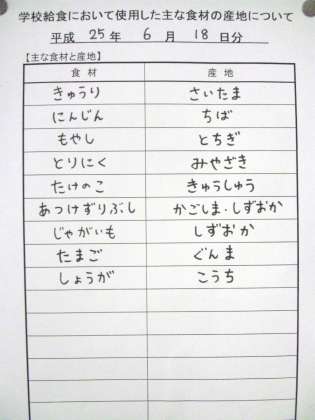 学校給食において使用した主な食材の産地について
平成 25 年 6 月 18 日分
【主な食材と産地】
食材 産地
きゅうり さいたま
にんじん ちば
もやし とちぎ
とりにく みやざき
たけのこ きゅうしゅう
あつけずりぶし かごしま・しずおか
じゃがいも しずおか
たまご ぐんま
しょうが こうち